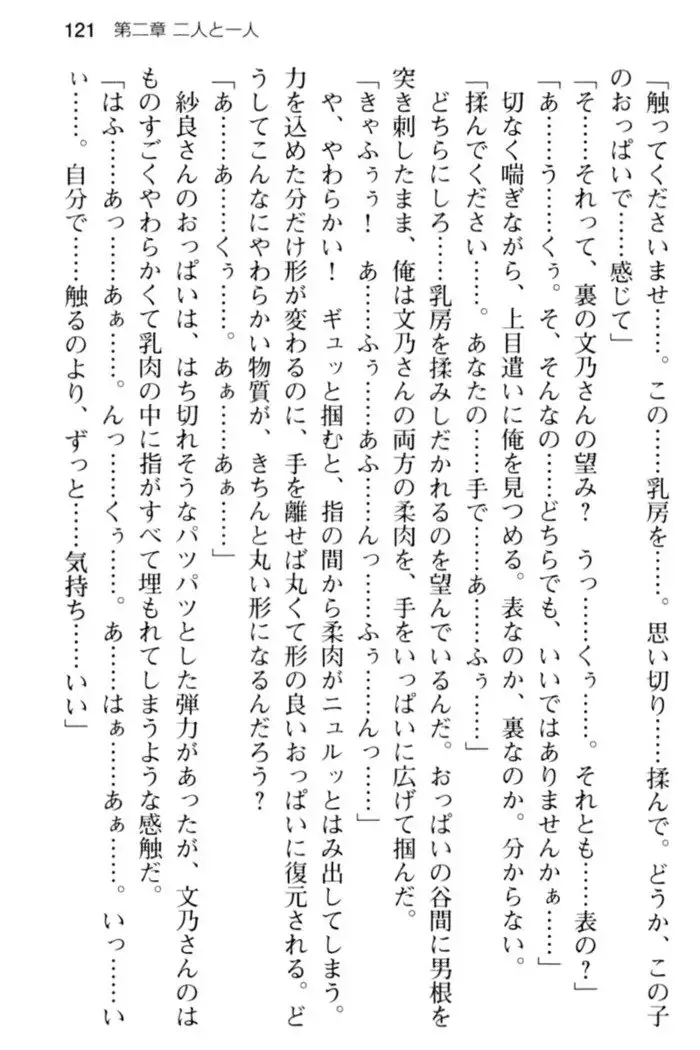 121 第二章 二人と一人
「触ってくださいませ……。この……乳房を……。思い切り……揉んで。どうか、この子
のおっぱいで……感じて」
「そ……それって、裏の文乃さんの望み？ うっ……くぅ……。それとも……表の？」
「あ……う……くぅ。そ、そんなの……どちらでも、いいではありませんかぁ……」
切なく喘ぎながら、上目遣いに俺を見つめる。表なのか、裏なのか。分からない。
「揉んでください……。あなたの……手で……あ……ふぅ……」
どちらにしろ……乳房を揉みしだかれるのを望んでいるんだ。おっぱいの谷間に男根を
突き刺したまま、俺は文乃さんの両方の柔肉を、手をいっぱいに広げて掴んだ。
「きゃふぅぅ！ あ……ふぅ……あふ……んっ……ふぅ……んっ……」
や、やわらかい！ ギュッと掴むと、指の間から柔肉がニュルッとはみ出してしまう。
力を込めた分だけ形が変わるのに、手を離せば丸くて形の良いおっぱいに復元される。ど
うしてこんなにやわらかい物質が、きちんと丸い形になるんだろう？
「あ……あ……くぅ……。あぁ……あぁ……」
紗良さんのおっぱいは、はち切れそうなパツパツとした弾力があったが、文乃さんのは
ものすごくやわらかくて乳肉の中に指がすべて埋もれてしまうような感触だ。
「はふ……あっ……あぁ……。んっ……くぅ……。あ……はぁ……あぁ……。いっ……い
ぃ……。自分で……触るのより、ずっと……気持ち……いい」